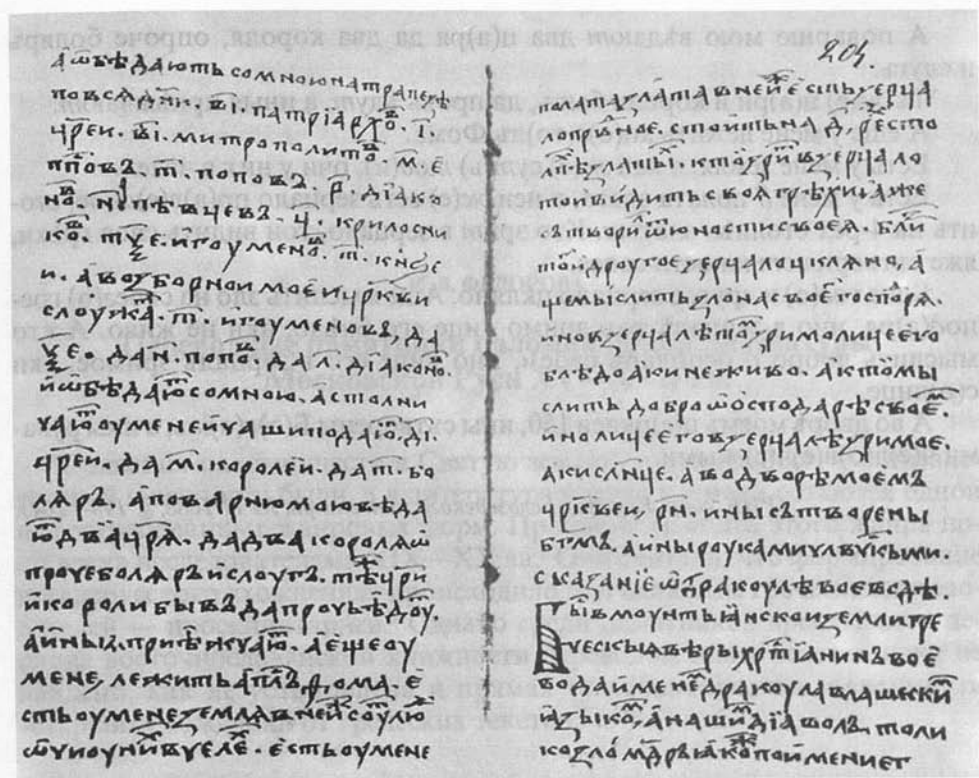 а ѡбѣдають со мною на трапезѣ
по вся д҃ни. в҃і. патріархѡв. і҃.
ц҃реи. в҃і. митрополитѡв. м҃е.
п҃повъ. т҃. поповъ. р҃. діакѡ
новъ. н҃. пѣвцевъ. ч҃. крилосни
кѡв. т҃ѯ҃е. игоуменов. т҃. кн҃зе
и. а въ зборнои моеи ц҃ркви
слоужат. т҃. игоуменовъ, да
ѯ҃е. да н҃. попов. да л҃. діаконов.
и ѡбѣдают со мною. а столни
чают оу мене и чаши подают. д҃і.
ц҃реи. да м҃. королеи. да т҃. бо
ляръ. а поварнюю вѣда
ют два ц҃ря. да два короля ѡ
проче боляръ и слоугъ. тѣ ц҃ри
и короли бывъ да прочь ѣдоут
а иныа приѣжчают. а еще оу
мене, лежить ап҃лъ ѳома. е
сть оу мене земля в неи соут лю
ѡчи оу них в челѣ. есть оу мене
204.
полата злата в неи есть зерца
ло првное. стоить на д҃. ре сто
лпѣ златы. кто зрит в зерцало
тои видить своя грѣхи аже
сътворил ѿ юности своея. бли
тои дроугое зерцало цкляно. а
щемыслить зло на своего госпⷣря.
ино в зерцалѣ том зримо лице его
блѣдо аки не живо. а кто мы
слить добро ѡ осподарѣ своем.
ино лице его в зерцалѣ зримое.
аки сл҃нце. а въ дворѣ моем
ц҃рквеи, р҃н. ины сътворены
б҃гмъ. а ины роуками чл҃вчкыми.
Сказаніе ѡ дракоулѣ воеводѣ.
Бысть в моунтьанскои земли гре
ческыа вѣры хрⷭтіанинъ вое
вода именем дракоула влашеским
языком, а нашим діаволъ толи
ко зломдръ яко по имени ег